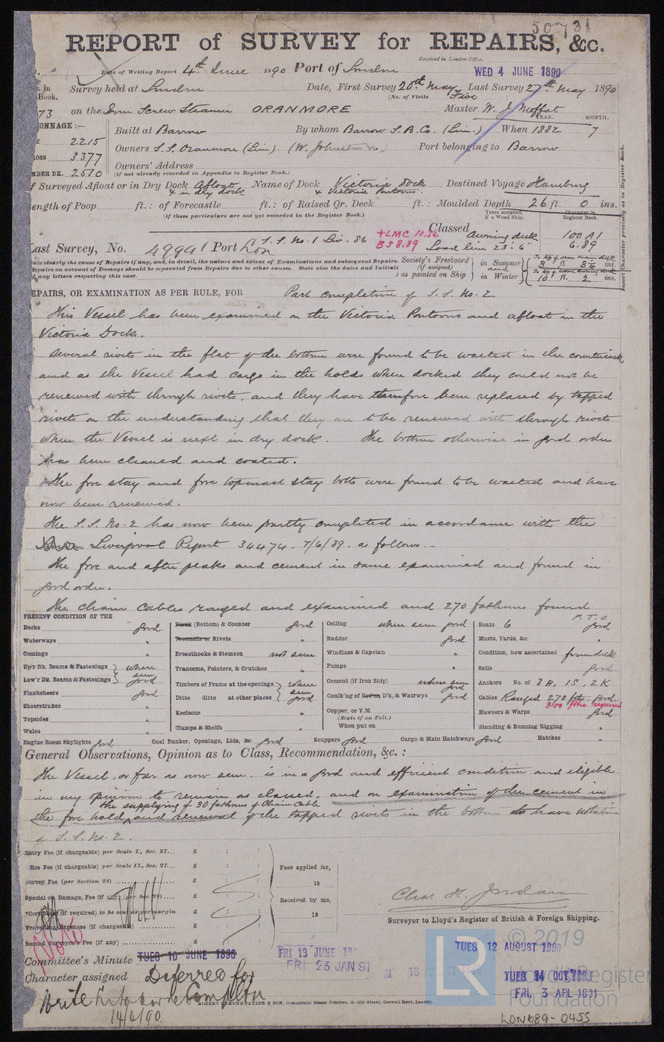 50731
REPORT of SURVEY for REPAIRS, &c.
Received in London Office,
Date of Writing Report 4th June 1890 Port of London
WED 4 JUNE 1890
in Book. Survey held at London Date, First Survey 20th May Last Survey 27th May 1890
(No. of Visits Five
73 on the Iron Screw Steamer ORANMORE Master W. J. Moffat
YEAR. MONTH.
TONNAGE:— Built at Barrow By whom Barrow S.B. Co. (Lim.) When 1882 7
2215
3377 Owners S.S. Oranmore (Lim). (W. Johnston) Port belonging to Barrow
Owners' Address
UNDER DK. 2570 (if not already recorded in Appendix to Register Book.)
If Surveyed Afloat or in Dry Dock Afloat & in dry dock Name of Dock Victoria Dock & Victoria Pontoons. Destined Voyage Hamburg
Length of Poop ft.: of Forecastle ft.: of Raised Qr. Deck ft.: Moulded Depth 26 ft. 0 ins.
(if these particulars are not yet recorded in the Register Book.)
+LMC 10.86
BS 8.89
Classed Awning deck 100 A1
Load line 23.6 6.89
Last Survey, No. 49991 Port Lon S.S. No. 1 Liv. 86
State clearly the cause of Repairs if any, and, in detail, the nature and extent of Examinations and subsequent Repairs.
Repairs on account of Damage should be separated from Repairs due to other causes. State also the dates and Initials
of any letters respecting this case.
Society's Freeboard (if assigned) as painted on Ship
in Summer
and
in Winter
REPAIRS, OR EXAMINATION AS PER RULE, FOR Part completion of S.S. No. 2
This Vessel has been examined on the Victoria Pontoons and afloat in the
Victoria Dock.
Several rivets in the flat of the bottom were found to be wasted in the countersink
and as the Vessel had cargo in the holds when docked they could not be
renewed with through rivets, and they have therefore been replaced by tapped
rivets on the understanding that they are to be renewed with through rivets
when the Vessel is next in dry dock. The bottom otherwise in good order
has been cleaned and coated.
The fore stay and fore topmast stay bolts were found to be wasted and have
now been renewed.
The S.S. No. 2 has now been partly completed in accordance with the
Liverpool Report 34474. 7/6/89. as follows.—
The fore and after peaks and cement in same examined and found in
good order.
The chain cables ranged and examined and 270 fathoms found
P.T.O.
PRESENT CONDITION OF THE
Decks good
Waterways "
Comings "
Up'r Dk. Beams & Fastenings
Low'r Dk. Beams & Fastenings where seen good
Planksheers good
Sheerstrakes "
Topsides "
Wales "
Plank (Bottom) & Counter good
Treenails or Rivets "
Breasthooks & Stemson not seen
Transoms, Pointers, & Crutches "
Timbers of Frame at the openings
Ditto ditto at other places where seen good
Keelsons "
Clamps & Shelfs "
Ceiling where seen good
Rudder good
Windlass & Capstan "
Pumps "
Cement (if Iron Ship) where seen good
Caulk'ng of Bottom D'k, & Watrways good
Copper, or Y.M.
(State if on Felt.)
When put on
Boats 6 good
Masts, Yards, &c. "
Condition, how ascertained from deck
Sails good
Anchors No. of 3 B, 1 S, 2 K
Cables Ranged 270 fths. good
300 fths. required
Hawsers & Warps good
Standing & Running Rigging "
Engine Room Skylights good Coal Bunker, Openings, Lids, &c. good Scuppers good Cargo & Main Hatchways good Hatches "
General Observations, Opinion as to Class, Recommendation, &c. :
The Vessel, so far as now seen is in a good and efficient condition and eligible
in my opinion to remain as classed, and on examination of the cement in
the supplying of 30 fathoms of Chain cable
the fore hold, and renewal of the tapped rivets in the bottom to have notation
of S.S. No. 2.
Entry Fee (if chargeable) per Scale I., Sec. 27... £ : :
Fee (if chargeable) per Scale II., Sec. 27... £ : :
Survey Fee (per Section 28) £ : :
Special or Damage, Fee (if any) £ : :
Travelling Expenses (if chargeable) £ : :
Second Surveyor's Fee (if any) £ : :
Fees applied for,
18
Received by me,
18
Chas. F. Jordan
Surveyor to Lloyd's Register of British & Foreign Shipping.
Note
Committee's Minute TUES 10 JUNE 1890 FRI 13 JUNE FRI 23 JAN 91
TUES 12 AUGUST 1890
TUES 14 OCT 1890
FRI. 3 APL 1891
Character assigned Deferred for
Completion
Write
14/6/90
© 2019
LR
Lloyd's Register
Foundation
LON689-0455